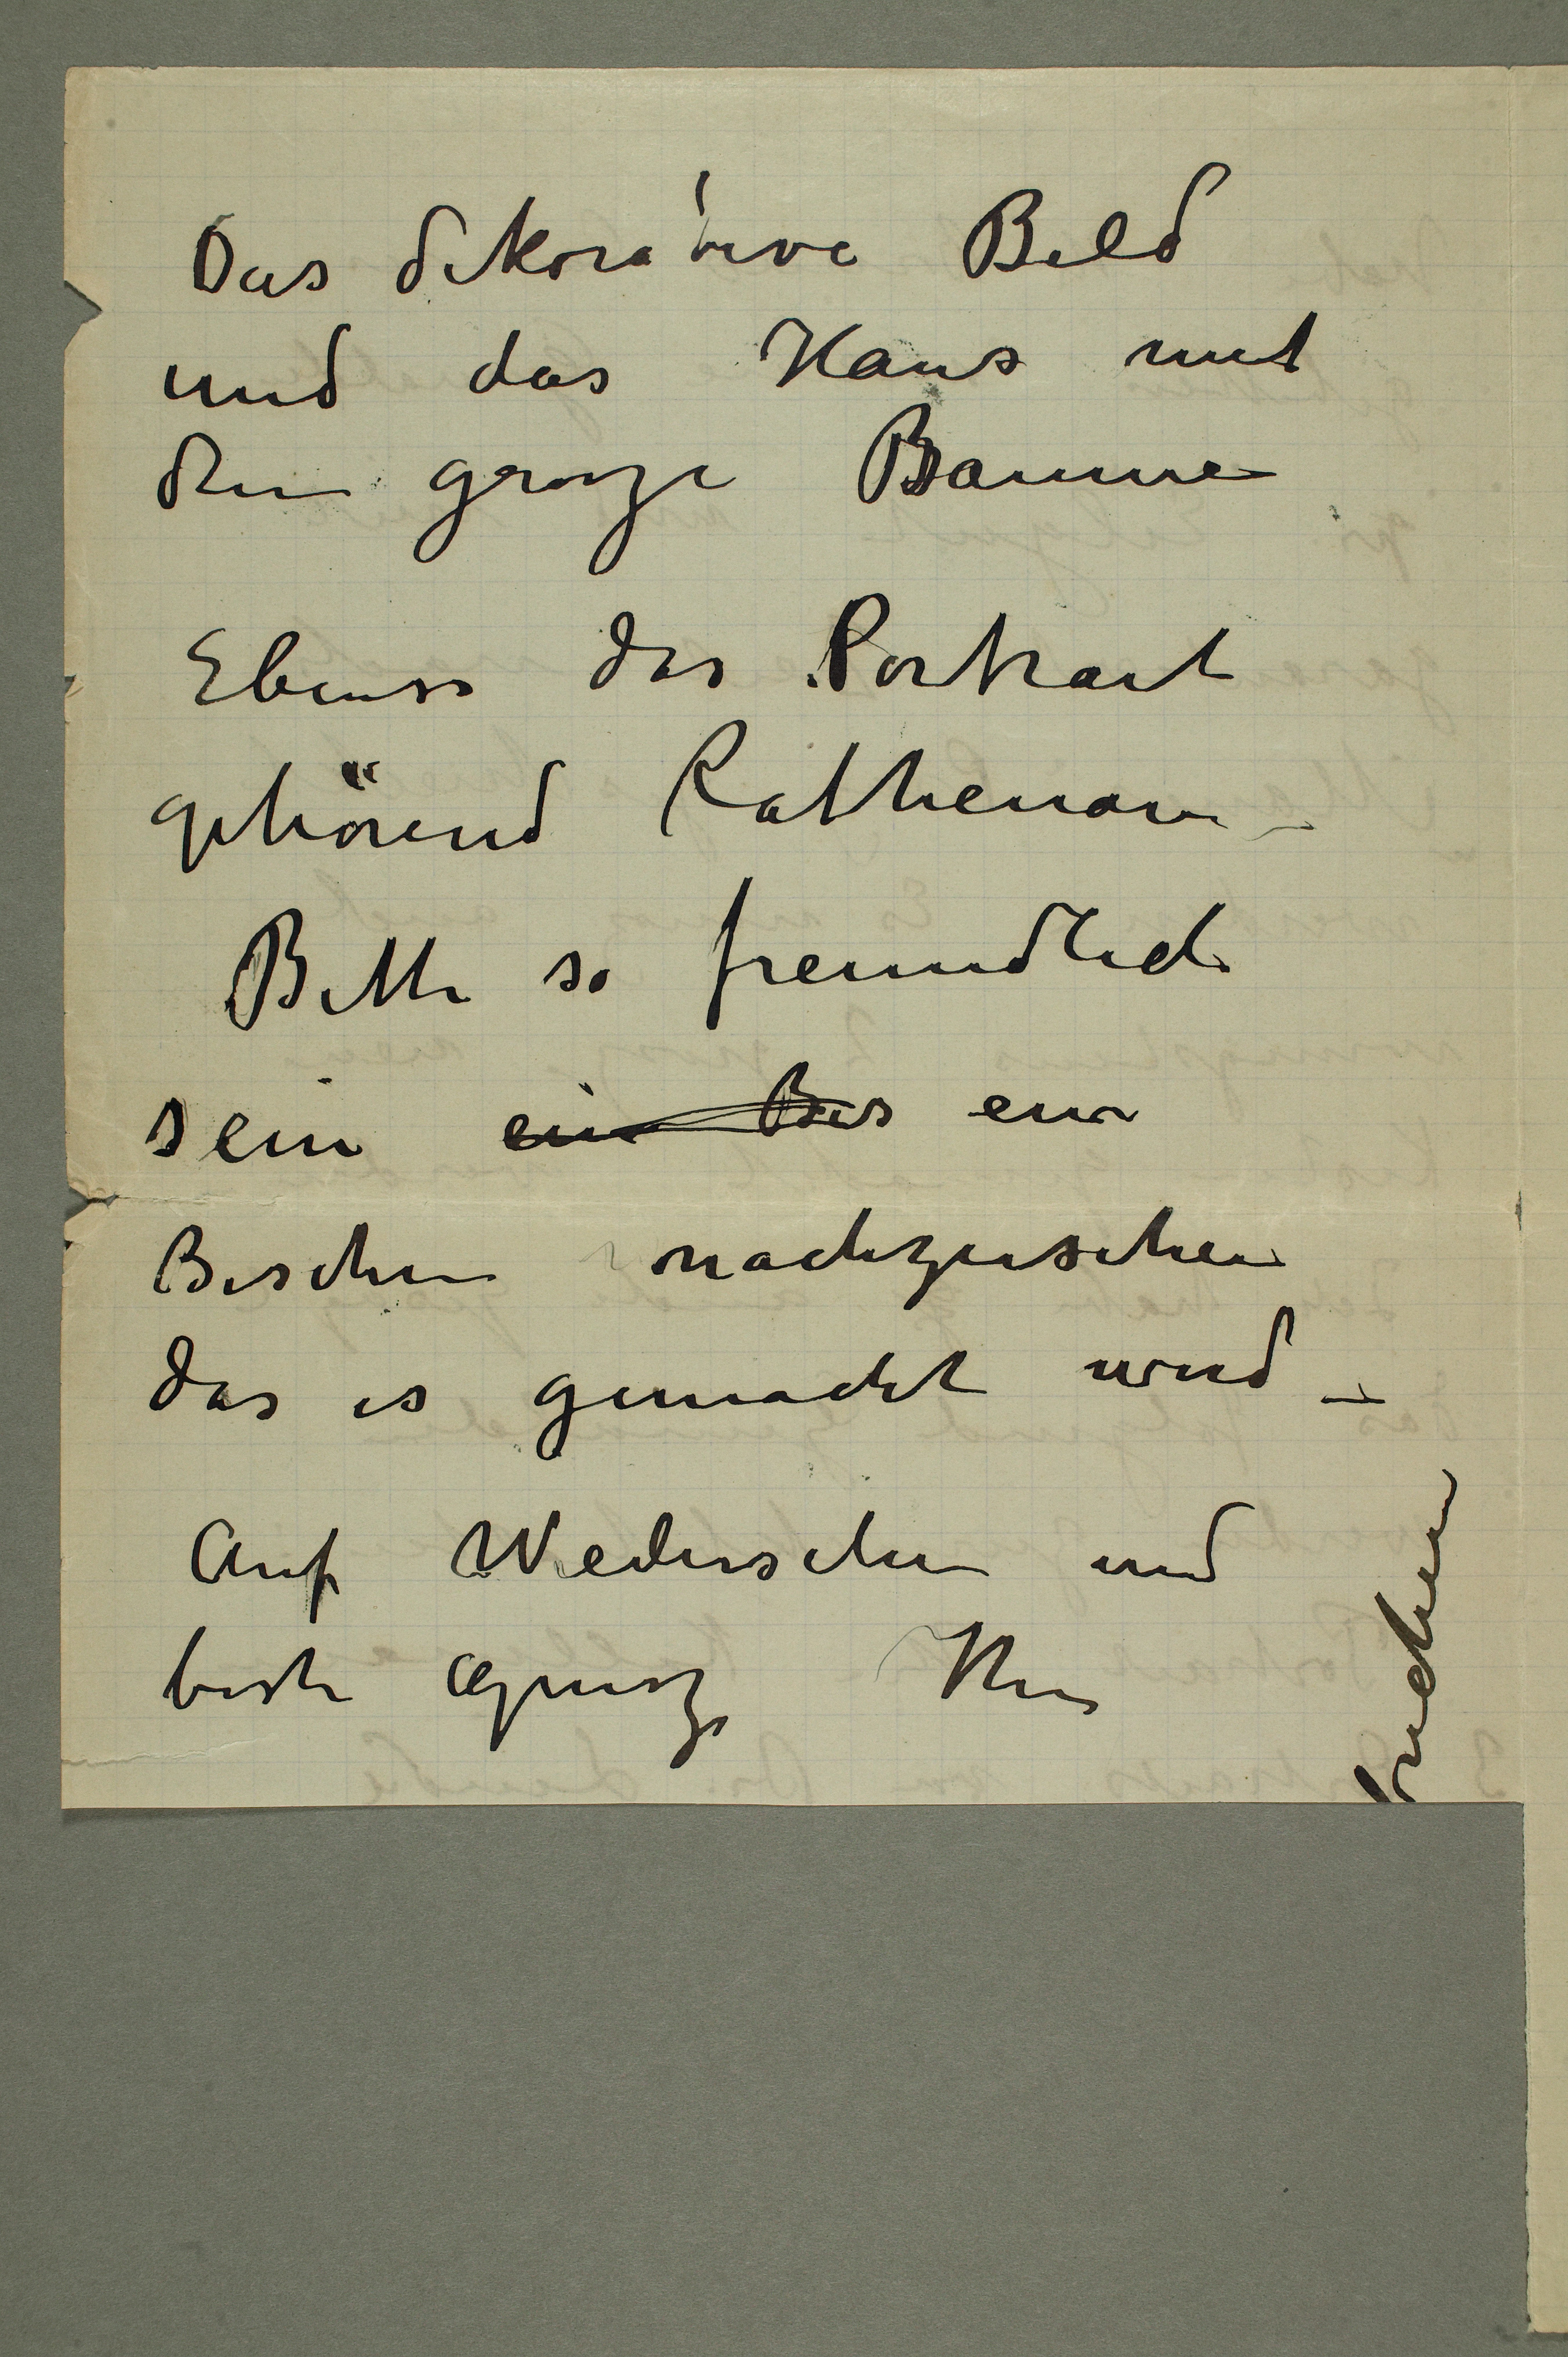 Das dekorative Bild
und das Haus mit
dem grosze Baume
Ebenso das Portrait
gehörend Rathenau –
Bitte so freundlich
sein ein Bis ein
Bischen nachzusehen
das es gemacht wird –
Auf Wedersehen und
beste Grusze Ihr